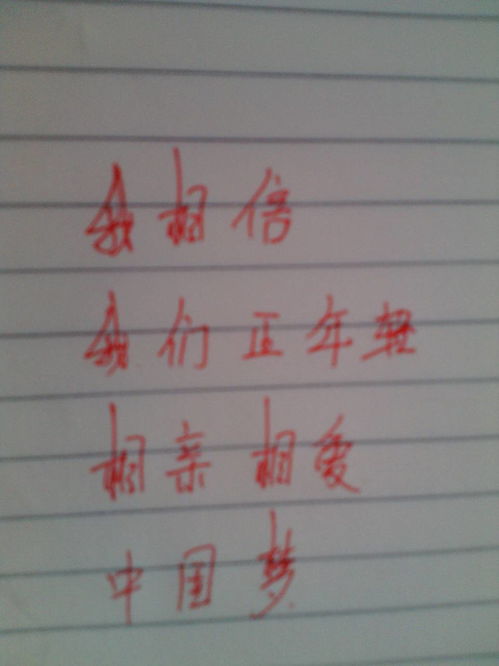 我相信
我们正年轻
相亲相爱
中国梦